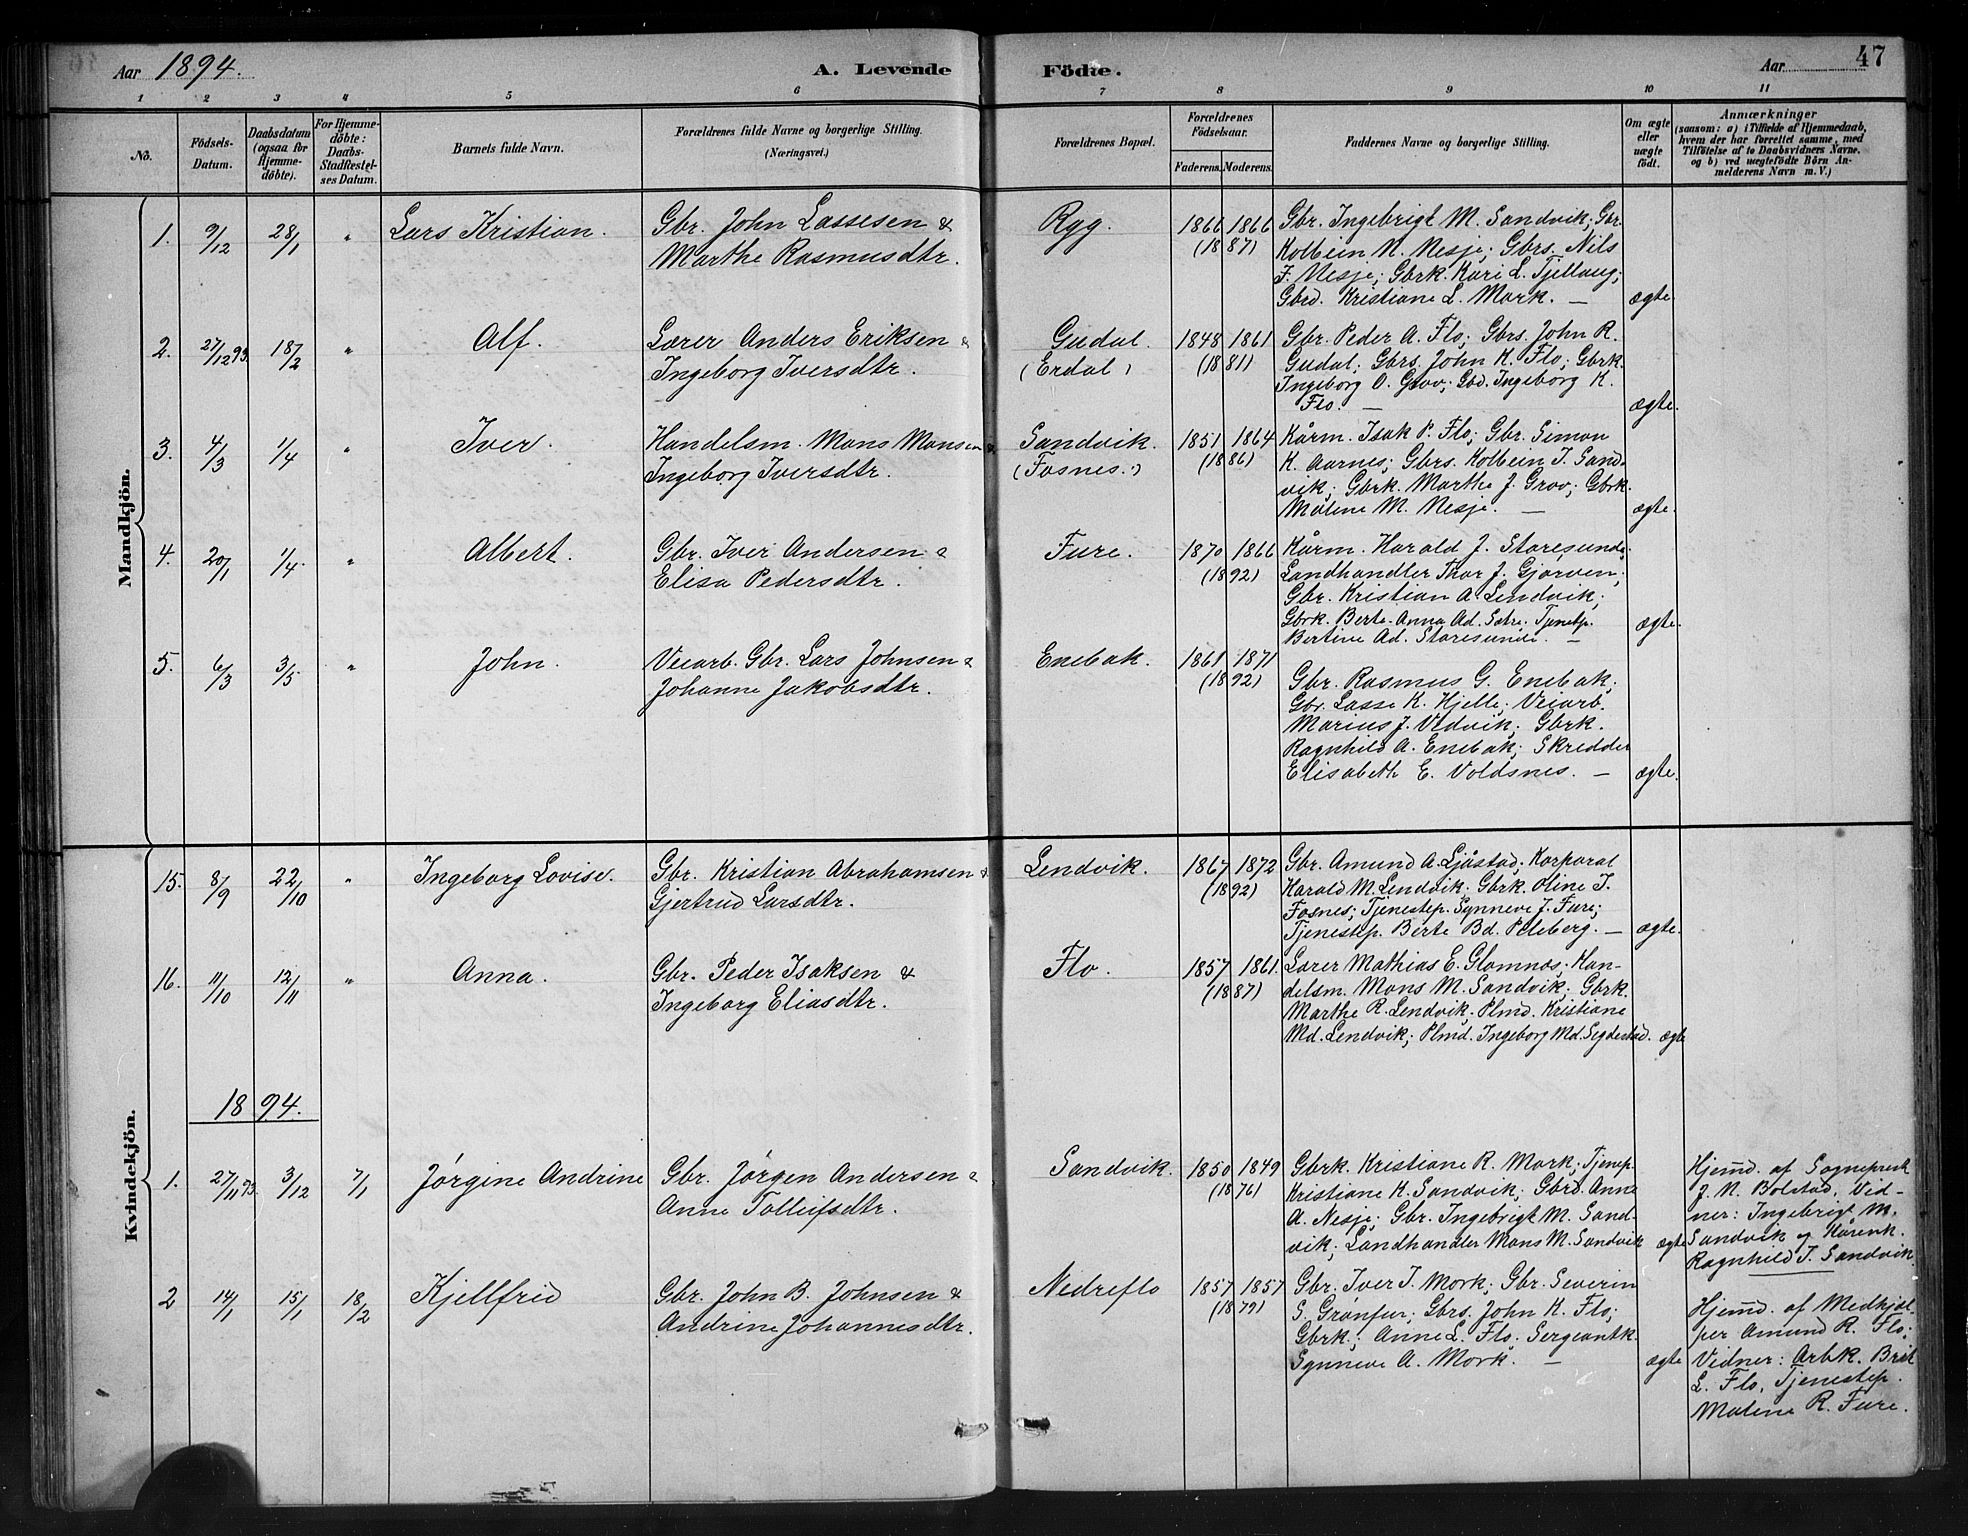 Aar 1894.
A. Levende Födte.
Aar 47
1 2 3 4 5 6 7 8 9 10 11
No.
Födsels-Datum.
Daabsdatum (ogsaa for Hjemme-döbte).
For Hjemme-döbte: Daabs-Stadfæstel-ses Datum.
Barnets fulde Navn.
Forældrenes fulde Navne og borgerlige Stilling. (Næringsvei.)
Forældrenes Bopæl.
Forældrenes Födselsaar.
Faderens. Moderens.
Faddernes Navne og borgerlige Stilling.
Om ægte eller uægte födt.
Anmærkninger
(saasom: a) i Tilfælde af Hjemmedaab, hvem der har forrettet samme, med Tilföielse af to Daabsvidners Navne. og b) ved uægtefödte Börn An-melderens Navn m. V.)
Mandkjön.
1. 9/12 28/1 " Lars Kristian. Gbr. John Lassesen &
Marthe Rasmusdtr.
Rygg. 1866 1866 (1887)
Gbr. Ingebrigt M. Sandvik; Gbr.
Kolbein N. Nesje; Gbrs. Nils
J. Nesje; Gbrk. Kari L. Tjellaug;
Gbrd. Kristiane L. Mork. — ægte.
2. 27/12 93. 18/2 " Alf. Lærer Anders Eriksen &
Ingeborg Iversdtr.
Gudal. (Erdal) 1848 1861 (1881)
Gbr. Peder A. Flo; Gbrs. John R.
Gudal; Gbrs. John K. Flo; Gbrk.
Ingeborg O. Grov; Gbd. Ingeborg K.
Flo. — ægte.
3. 4/3 1/4 " Iver. Handelsm. Mons Monsen &
Ingeborg Iversdtr.
Sandvik. (Fosnes.) 1851 1864 (1886)
Kårm. Isak P. Flo; Gbr. Simon
K. Aarnes; Gbrs. Kolbein I. Sand-
vik; Gbrk. Marthe J. Grov; Gbrk.
Malene M. Nesje. — ægte.
4. 20/1 1/4. " Albert. Gbr. Iver Andersen &
Elisa Pedersdtr.
Fure. 1870 1866 (1892)
Kårm. Harald J. Storesunde;
Landhandler Thor J. Gjorven;
Gbr. Kristian A. Lendvik;
Gbrk. Berte-Anna Ad. Sætre; Tjenstp.
Bertine Ad. Storesunde. — ægte.
5. 6/3 3/5 " John. Veiarb. Gbr. Lars Johnsen &
Johanne Jakobsdtr.
Enebak. 1861 1871 (1892)
Gbr. Rasmus G. Enebak;
Gbr. Lasse K. Hjelle; Veiarb.
Marius J. Vedvik; Gbrk.
Ragnhild A. Enebak; Skredder
Elisabeth E. Voldsnes. — ægte.
Kvindekjön.
15. 8/9 22/10 " Ingeborg Lovise. Gbr. Kristian Abrahamsen &
Gjertrud Larsdtr.
Lendvik. 1867 1872 (1892)
Gbr. Amund A. Ljåstad; Korporal
Harald M. Lendvik; Gbrk. Oline I.
Fosnes; Tjenestep. Synneve J. Fure;
Tjenestep. Birte Bd. Peleberg. — ægte.
16. 11/10 12/11 " Anna. Gbr. Peder Isaksen &
Ingeborg Eliasdtr.
Flo. 1857 1861. (1887)
Lærer Mathias E. Glomnæs; Han-
delsm. Mons M. Sandvik; Gbrk.
Marthe R. Lendvik; Plmd. Kristiane
Md. Lendvik; Plmd. Ingeborg Md. Segdestad. ægte
1894.
1. 27/11 93. 3/12 7/1 Jørgine Andrine Gbr. Jørgen Andersen &
Anne Tolleifsdtr.
Sandvik. 1850 1849 (1876)
Gbrk. Kristiane R. Mork; Tjenep.
Kristiane K. Sandvik; Gbrd. Anne
A. Nesje; Gbr. Ingebrigt M. Sand-
vik; Landhandler Mons M. Sandvik ægte
Hjemd. af Sogneprest
J. N. Bolstad. Vid-
ner: Ingebrigt M.
Sandvik og Kårenk.
Ragnhild T. Sandvik
2 14/1 15/1 18/2 Kjellfrid Gbr. John B. Johnsen &
Andrine Johannesdtr.
Nedreflo 1857 1857 (1879)
Gbr. Iver I. Mork; Gbr. Severin
S. Grønfur; Gbrs. John K. Flo;
Gbrk. Anne L. Flo; Sergeantk.
Synneve A. Mork. — ægte
Hjemd. af Medhjæl-
per Amund R. Flo;
Vidner: Arbk. Brit
L. Flo, Tjenestep.
Malene R. Fure.